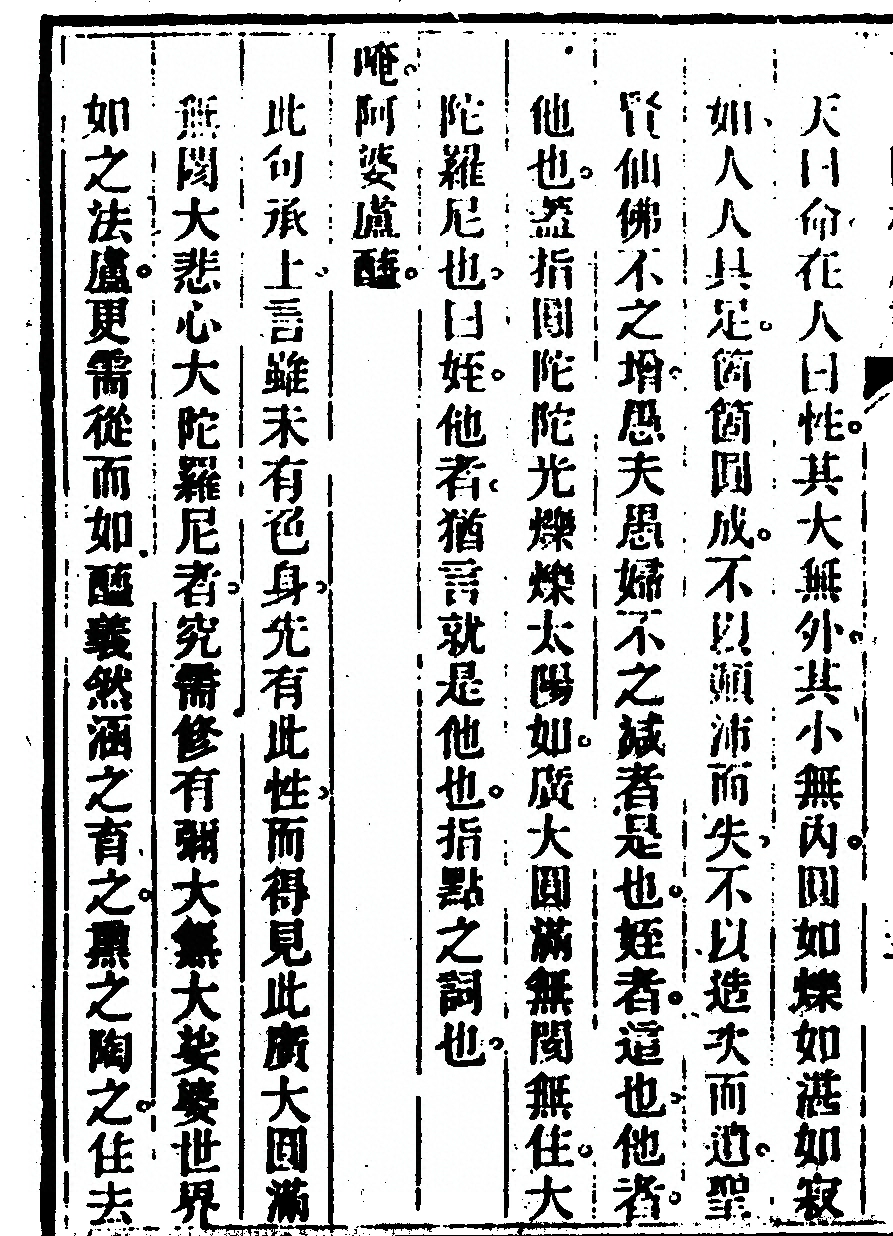 天曰命在人曰性。其大無外。其小無內。圓如爍如湛如寂
如。人人具足。箇箇圓成。不以顛沛而失。不以造次而遺。聖
賢仙佛不之增。愚夫愚婦不之減者是也。姪者。這也。他者。
他也。蓋指圓陀陀光爍爍太陽如。廣大圓滿無閡無住。大
陀羅尼也。曰姪。他者。猶言就是他也。指點之詞也。
唵。阿婆盧醯。
此句承上。言雖未有色身。先有此性。而得見此廣大圓滿
無閡大悲心大陀羅尼者。究需修有彌大無大娑婆世界
如之法盧。更需從而如醯義然涵之育之。熏之陶之。住去